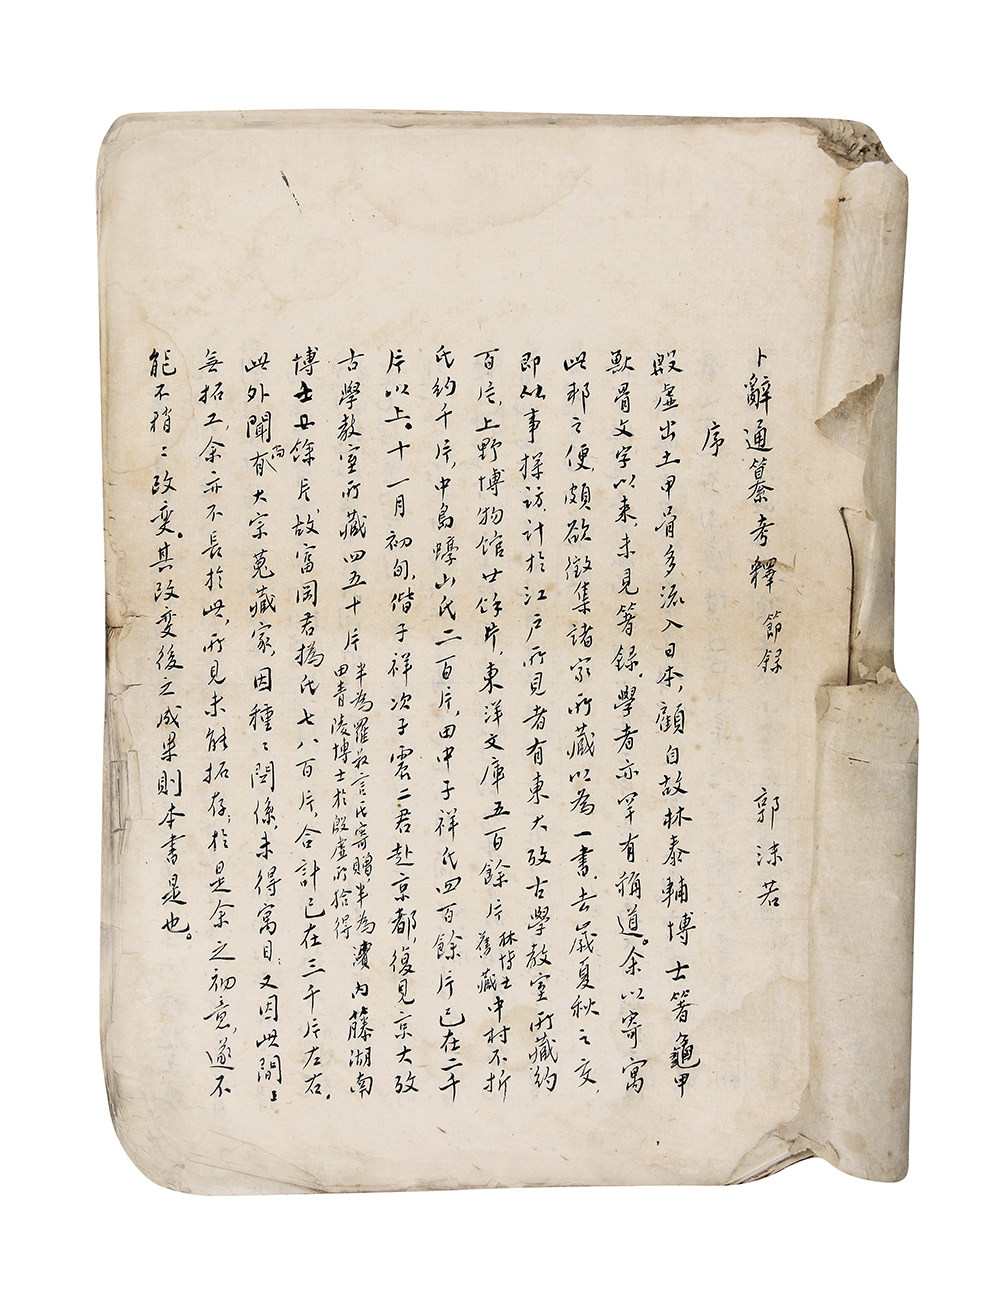 卜辭通纂考釋 節錄 郭沫若
序
殷虛出土甲骨多流入日本，顧自故林泰輔博士箸龜甲
獸骨文字以來，未見箸錄。學者亦罕有稱道。余以寄寓
此邦之便，頗欲徵集諸家所藏以為一書。去歲夏秋之交，
即從事探訪，計於江戶所見者有東大攷古學教室所藏約
百片，上野博物館廿餘片，東洋文庫五百餘片林博士舊藏中村不折
氏約千片，中島蠔山氏二百片，田中子祥氏四百餘片已在二千
片以上。十一月初旬，偕子祥次子震二君赴京都，復見京大攷
古學教室所藏四五十片半為羅叔言氏寄贈半為濱田青陵博士於殷虛所拾得內藤湖南
博士廿餘片，故富岡君撝氏七八百片，合計已在三千片左右。
此外聞尚有大宗蒐藏家，因種〻関係，未得寓目；又因此間〻
無拓工，余亦不長於此，所見未能拓存；於是余之初意，遂不
能不稍〻改變。其改變後之成果則本書是也。